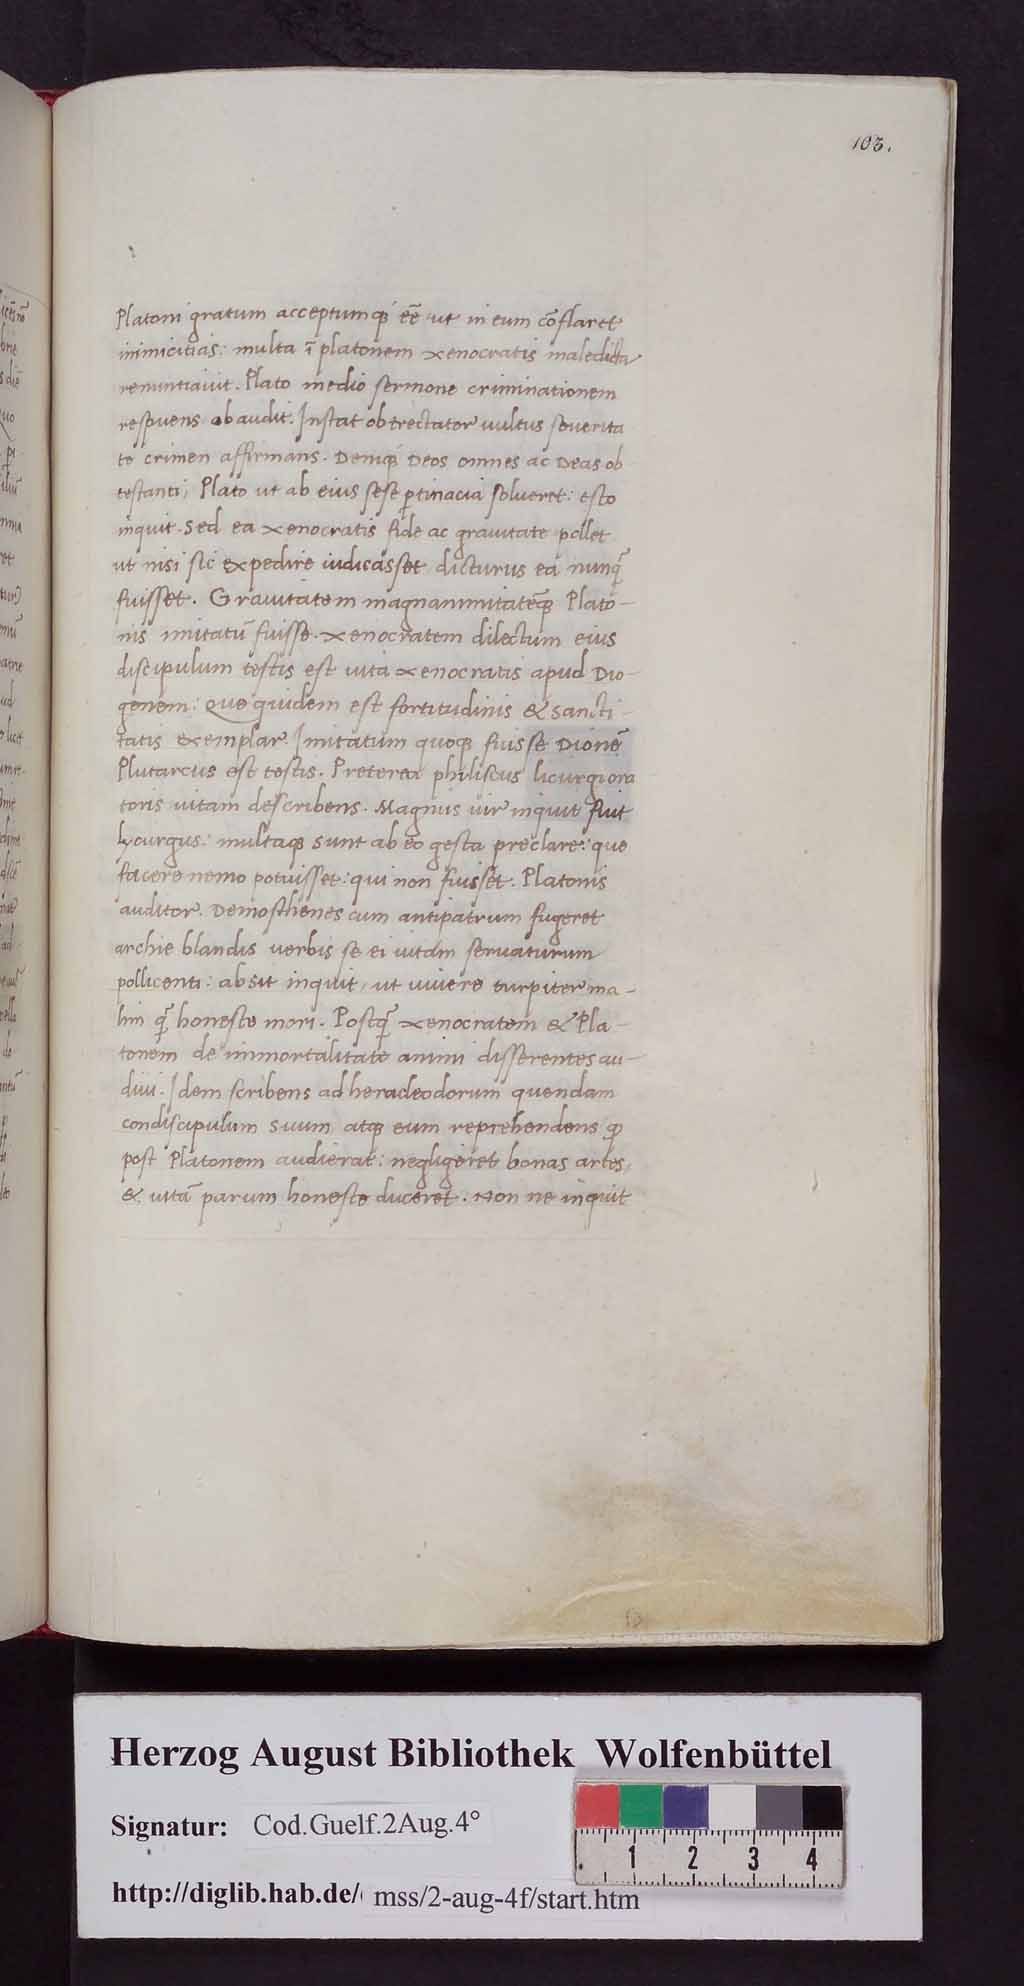 103.
Platoni gratum acceptumqꝫ eē ut in eum cōflaret
inimicitias: multa ī platonem xenocratis maledicta
renuntiavit. Plato medio sermone criminationem
respuens obaudit. Instat obtrectator uultus seuerita
te crimen affirmans. Deniqꝫ Deos omnes ac Deas ob
testanti, Plato ut ab eius sese ꝑtinacia solueret: esto
inquit. Sed ea xenocratis fide ac grauitate pollet
ut nisi sic expedire iudicasset dicturus ea nunq̄
fuisset. Grauitatem magnanimitatēqꝫ Plato-
nis imitatū fuisse. xenocratem dilectum eius
discipulum testis est uita xenocratis apud Dio-
genem: Que quidem est fortitudinis & sancti-
tatis exemplar. Imitatum quoqꝫ fuisse Dionē
Plutarcus est testis. Preterea philiscus licurgi ora
toris uitam describens. Magnus uir inquit fuit
lycurgus: multaqꝫ sunt ab eo gesta preclare: que
facere nemo potuisset: qui non fuisset. Platonis
auditor. Demosthenes cum antipatrum fugeret
archie blandis uerbis se ei uitam seruaturum
pollicenti: absit inquit, ut uiuere turpiter ma-
lim q̄ honeste mori. Postq̄ xenocratem & Pla-
tonem de immortalitate animi disserentes au-
diui. Idem scribens ad heracleodorum quendam
condiscipulum suum atqꝫ eum reprehendens ꝙ
post Platonem audierat: negligeret bonas artes,
& uitā parum honeste duceret. Non ne inquit
Herzog August Bibliothek Wolfenbüttel
Signatur: Cod.Guelf.2Aug.4°
1 2 3 4
http://diglib.hab.de/ mss/2-aug-4f/start.htm